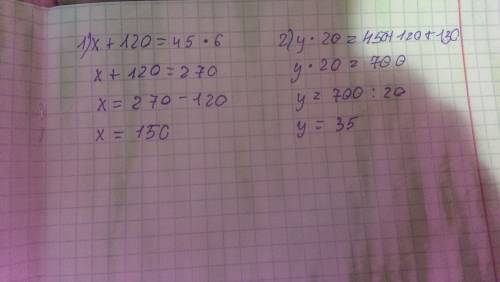 1) x + 120 = 45 · 6
x + 120 = 270
x = 270 - 120
x = 150
2) y · 20 = 450 + 120 + 130
y · 20 = 700
y = 700 : 20
y = 35